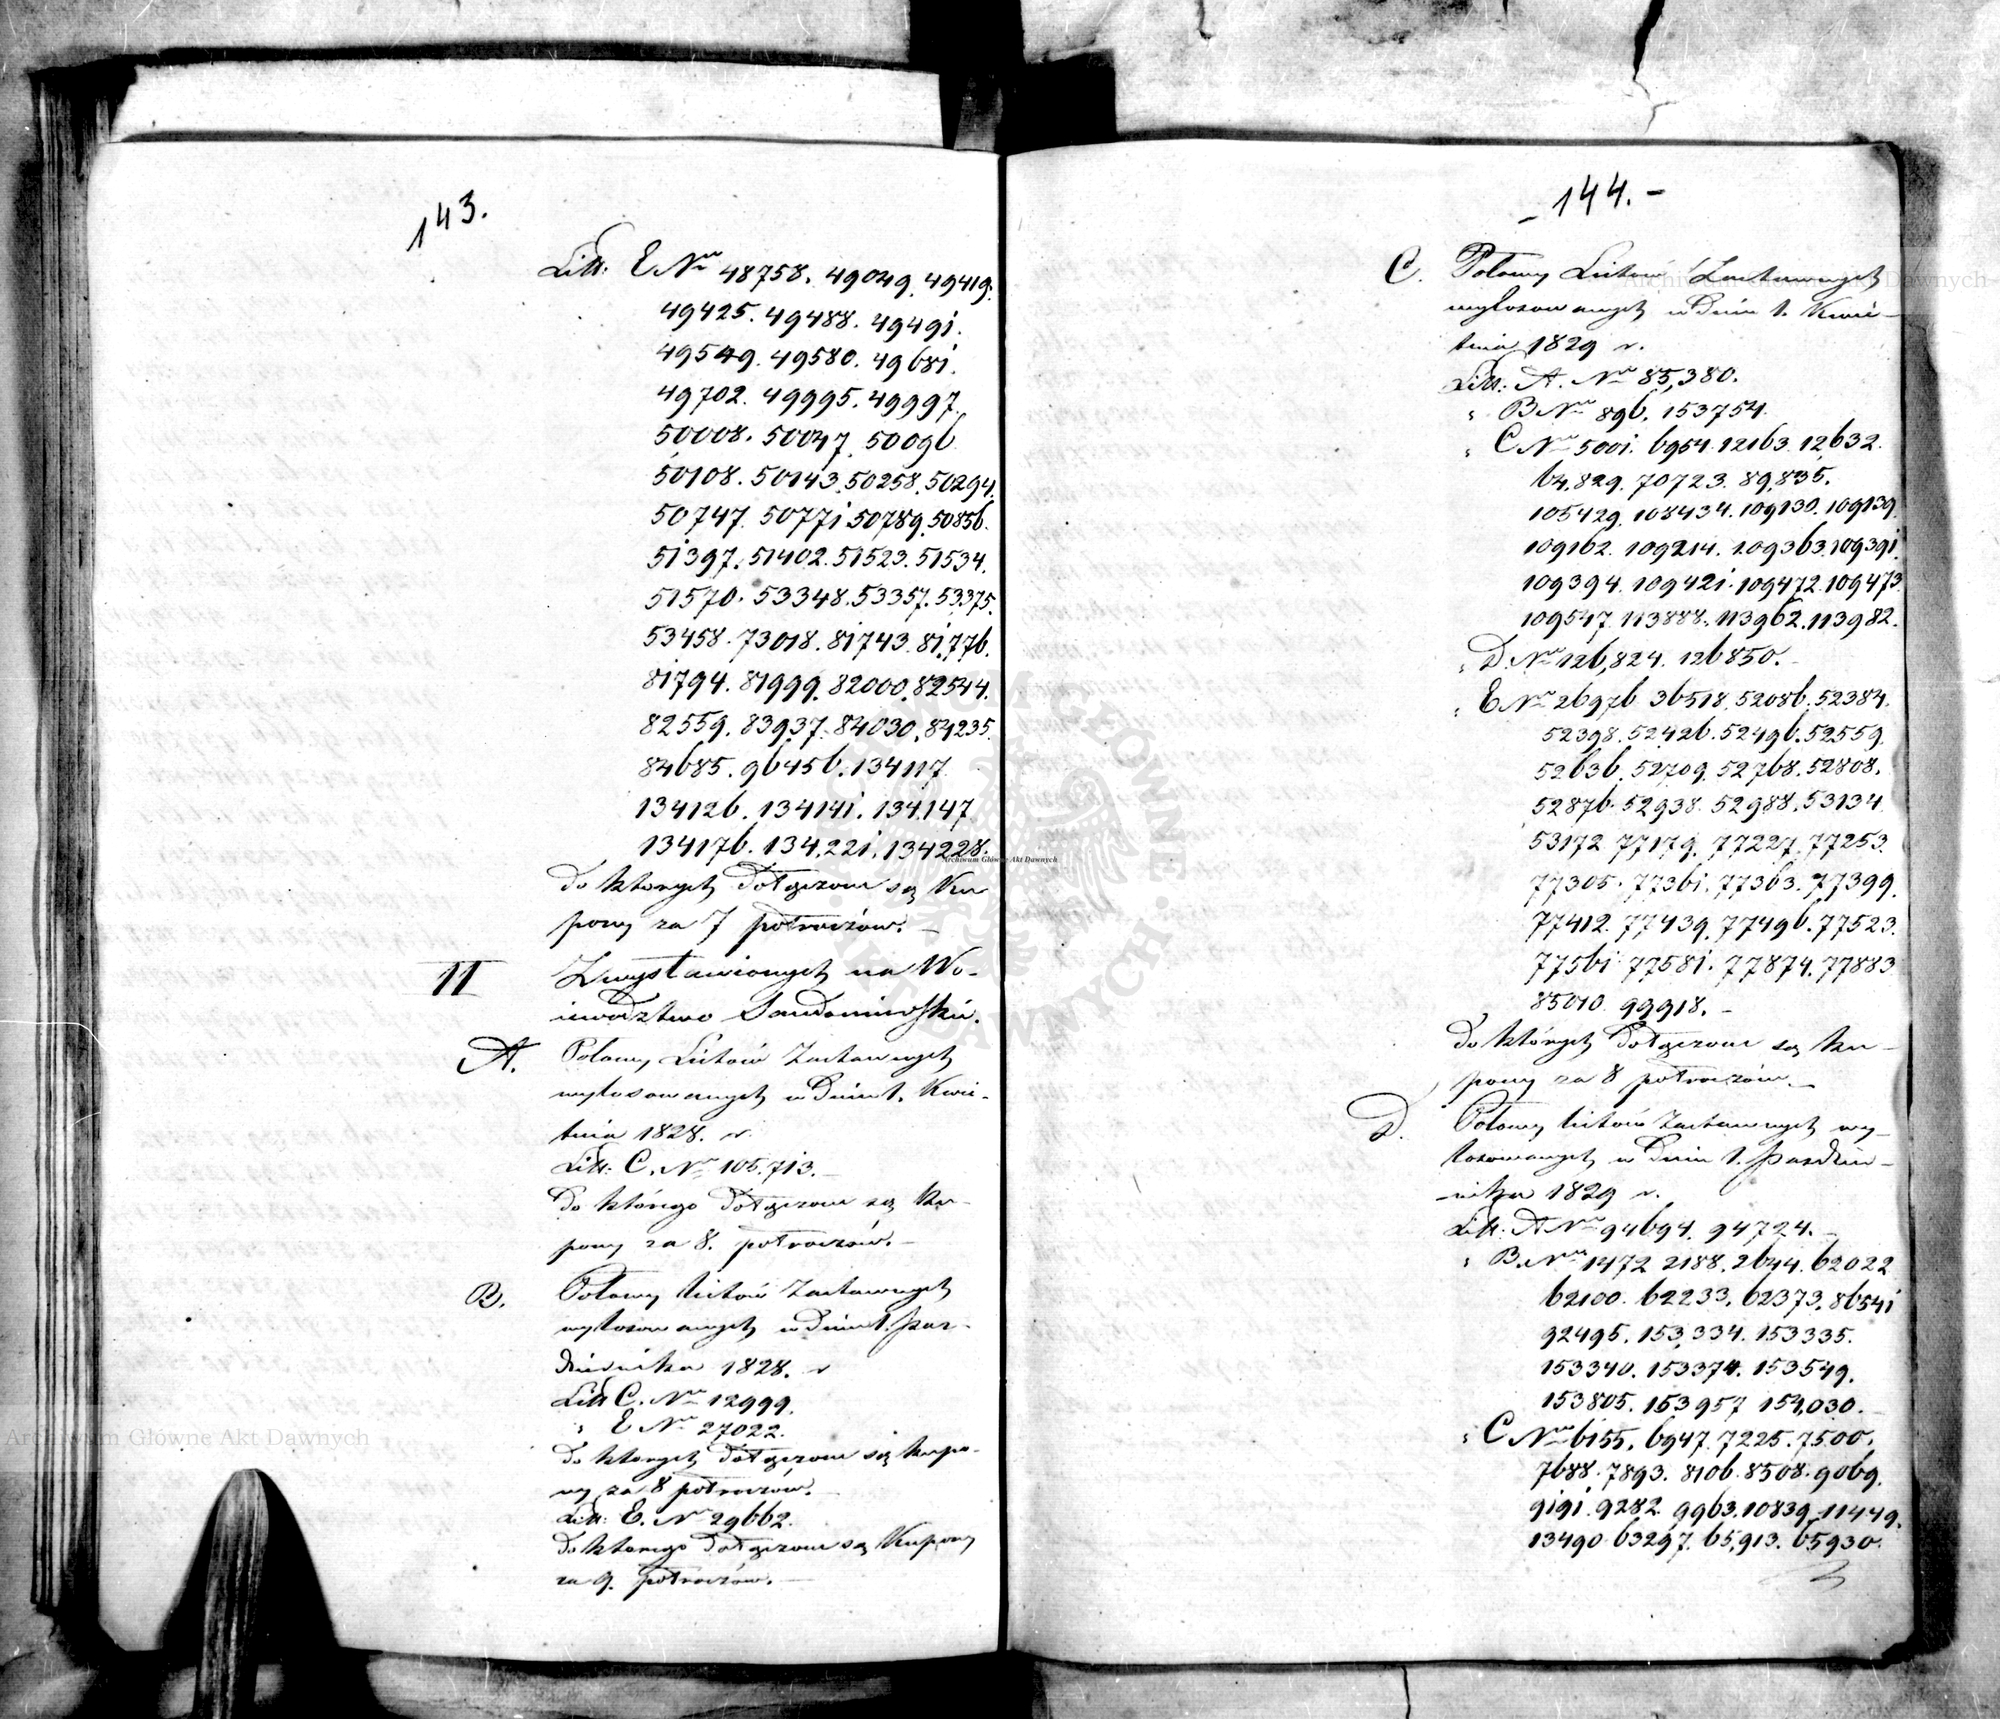 143.
Litt: E Nra 48758. 49049. 49419.
49425. 49488. 49491.
49549. 49580. 49681.
49702. 49995. 49997.
50008. 50047. 50096.
50108. 50143. 50258. 50294.
50747. 50771. 50789. 50856.
51397. 51402. 51523. 51534.
51570. 53348. 53357. 53375.
53458. 73018. 81743. 81,776.
81794. 81999. 82000. 82544.
82559. 83937. 84030. 84235.
84685. 96456. 134117.
134126. 134141. 134,147
134176. 134,221. 134228.
do których dołączone są Ku
pony za 7 półroczów. —
II Z wystawionych na Wo-
iewództwo Sandomirskie.
A. Połowy Listów Zastawnych
wylosowanych w Dniu 1. Kwie-
tnia 1828. r.
Litt: C. Nr 105.713. —
do którego dołączone są Ku-
pony za 8. półroczów. —
B. Połowy listów Zastawnych
wylosowanych w Dniu 1. Paz-
dziernika 1828. r
Litt C. Nra 12999.
„ E Nr 27022.
do których dołączone są kupo-
ny za 8 półroczów. —
Litt: E. Nr 29662.
do którego dołączone są Kupony
za 9. półroczów. —
- 144. -
C. Połowy Listów Zastawnych
wylosowanych w Dniu 1. Kwie-
tnia 1829 r.
Litt: A. Nr 85,380.
„ B Nra 896. 153754.
„ C Nra 5001. 6954. 12163. 12632.
64,829. 70723. 89,835.
105429. 108434. 109130. 109139.
109162. 109214. 109363. 109391.
109394. 109421. 109472. 109473.
109547. 113888. 113962. 113982.
„ D. Nra 126,824. 126850. —
„ E Nra 26976. 36518. 52086. 52384.
52398. 52426. 52496. 52559.
52636. 52709. 52768. 52808.
52876. 52938. 52988. 53134.
53172. 77179. 77227. 77253.
77305. 77361. 77363. 77399.
77412. 77439. 77496. 77523.
77561. 77581. 77874. 77883.
85010. 99918. —
do których dołączone są ku-
pony za 8 półroczów. —
D. Połowy listów Zastawnych wy-
losowanych w Dniu 1. Pazdzier-
-nika 1829 r.
Litt: A Nra 94694. 94724. —
„ B. Nra 1472. 2188. 2644. 62022
62100. 62233. 62373. 86541
92495. 153,334. 153335.
153340. 153374. 153549.
153805. 153957 154,030. —
„ C Nra 6155. 6947. 7225. 7500.
7688. 7893. 8106. 8508. 9069.
9191. 9282. 9963. 10839. 11449.
13490. 63297. 65,913. 65930.
Archiwum Główne Akt Dawnych